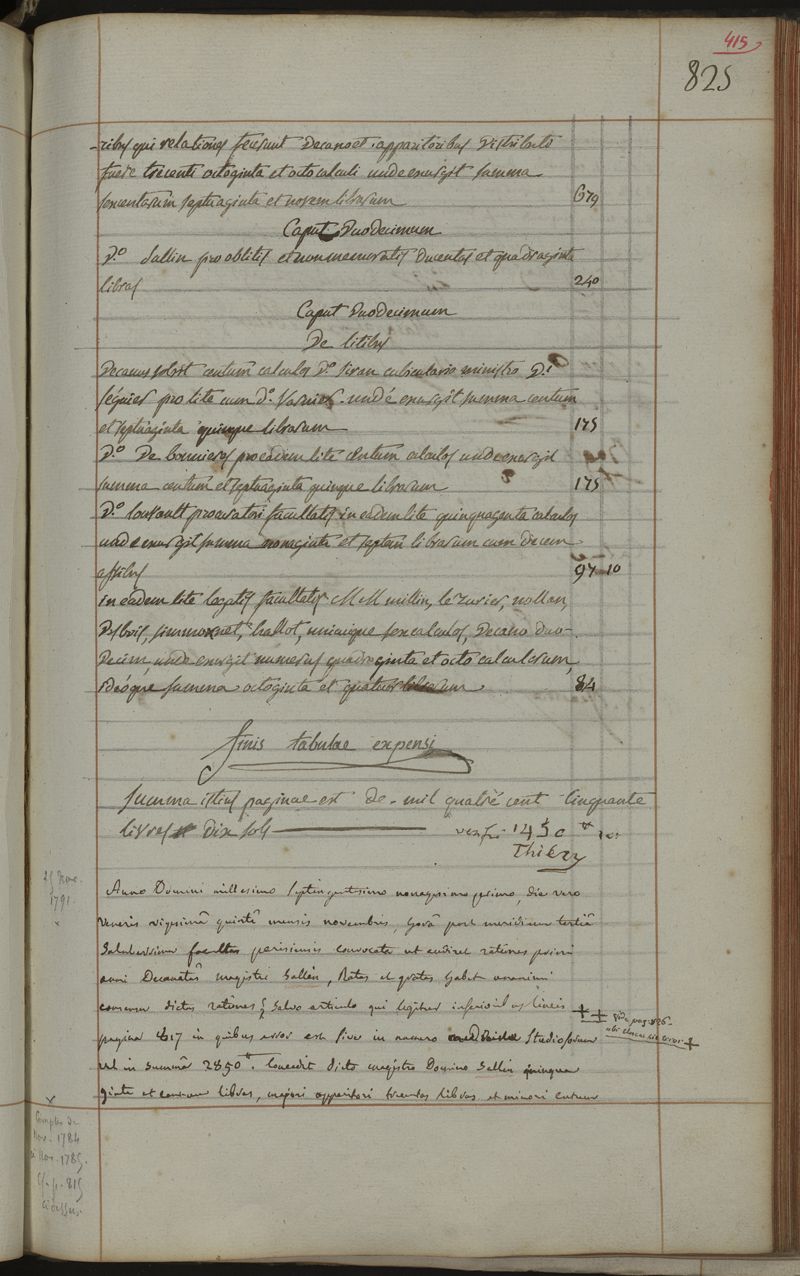 415
825
-ribus qui relationes fecerunt Decano et apparitoribus Distributi
fuere trecenti octoginta et octo calculi unde exurgit summa
sexcentarum septuaginta et novem librarum 679
Caput Duodecimum
D.o Sallin pro oblitis et non memoratis ducentas et quadraginta
libras 240
Caput Duodecimum
De litibus
Decanus solvit centum calculos D.o Siran cubiculario ministro D.i
séguier pro lite cum d.o Varnier. undé exurgit summa centum
et septuaginta quinque librarum 175
D.o De bonnieres pro eadem lite centum calculos unde exurgit
summa centum et septuaginta quinque librarum 175
D.o procuratori facultatis in eadem lite quinquagenta calculos
unde exurgit summa nonaginta et septem librarum cum decem
assibus 97 10
in eadem lite legatis facultatis MM millin, nollan,
hallot, unicuique sex calculos, Decano duo-
Decim, unde exurgit numerus quadraginta et octo calculorum,
ideóque summa octoginta et quatuor librarum 84
finis tabulae expensi
Summa istius paginae est De mil quatre cent Cinquante
livres dix sols 1450 10s
Thiéry
25 Nov. 1791.
Anno Domini millesimo septingentesimo nonagesimo primo, die vero
veneris vigesimâ quintâ mensis novembris, horâ post meridiem tertiâ
saluberrima facultas parisiensis convocata ut audiret rationes primi
anni Decanatûs magistri Sallin, Ratas et gratas habet unanimi
consensu dictas rationes salvo articulo qui legitur inferioribus lineis
pagina 817 in quibus error est sive in numero studiosorum
vel in summâ 2850tt. Concedit dicto magistro Domino Sallin quinqua
ginta et centum libras, majori apparitori trecentas libras et minori centum
vide pag. 826
Comptes de
Nov. 1784
à Nov. 1785.
cf. p. 815
ci dessus